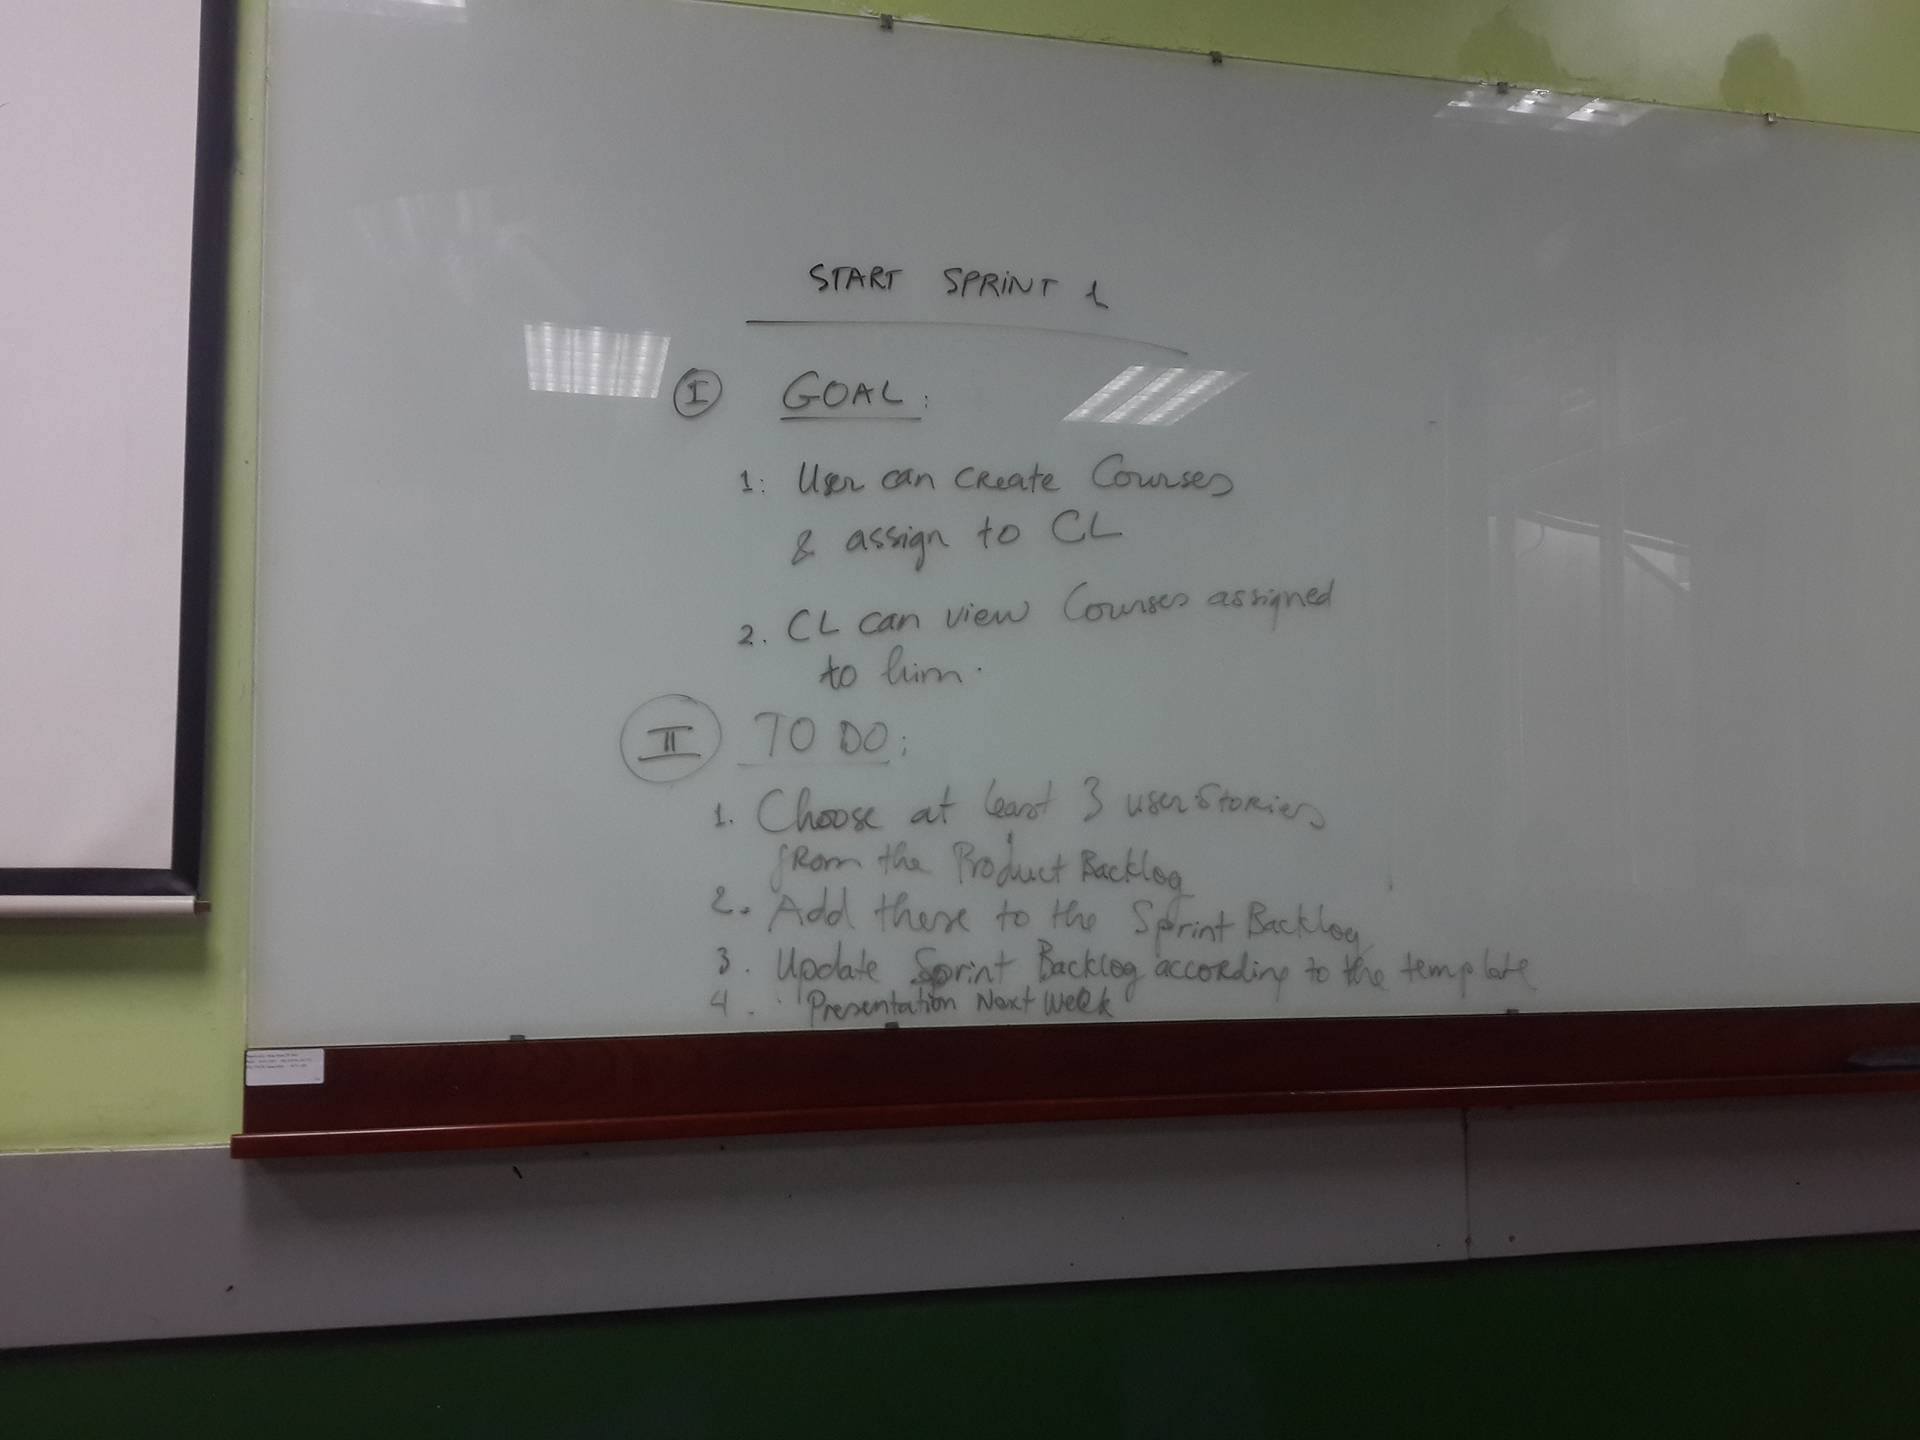 START SPRINT 1
I GOAL:
1: User can create Courses
& assign to CL
2. CL can view Courses assigned
to him.
II TO DO:
1. Choose at least 3 user stories
from the Product Backlog
2. Add these to the Sprint Backlog
3. Update Sprint Backlog according to the template
4. Presentation Next Week